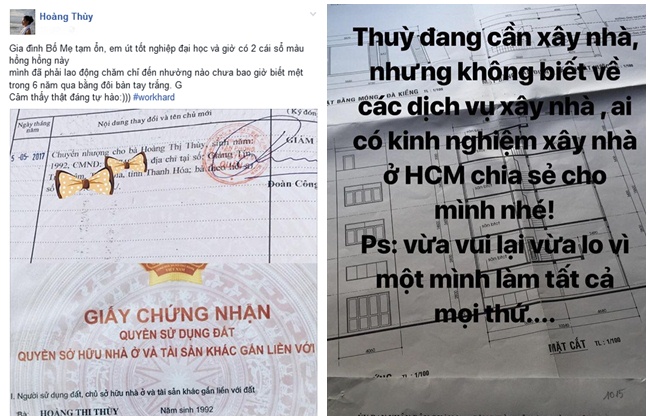 Hoàng Thùy
Gia đình Bố Mẹ tạm ổn, em út tốt nghiệp đại học và giờ có 2 cái sổ màu
hồng hồng này
mình đã phải lao động chăm chỉ đến nhường nào chưa bao giờ biết mệt
trong 6 năm qua bằng đôi bàn tay trắng. G
Cảm thấy thật đáng tự hào:))) #workhard
Ngày tháng
năm
Nội dung thay đổi và tên chủ mới
(Ký đón
5-05-2017
Chuyển nhượng cho bà Hoàng Thị Thùy, sinh năm:
1992, CMND:
địa chỉ tại số:
GIÁM
tỉnh Thanh Hóa;
số
Đoàn Công
GIẤY CHỨNG NHẬN
QUYỀN SỬ DỤNG ĐẤT
QUYỀN SỞ HỮU NHÀ Ở VÀ TÀI SẢN KHÁC GẮN LIỀN VỚI
I. Người sử dụng đất, chủ sở hữu nhà ở và tài sản khác gắn liền với đất
Bà: HOÀNG THỊ THÙY Năm sinh 1992
Thuỳ đang cần xây nhà,
nhưng không biết về
các dịch vụ xây nhà , ai
có kinh nghiệm xây nhà
ở HCM chia sẻ cho
mình nhé!
Ps: vừa vui lại vừa lo vì
một mình làm tất cả
mọi thứ....
BẰNG MÓNG ĐÀ KIỀNG
MẶT CẮT TL : 1/100
TL : 1/100